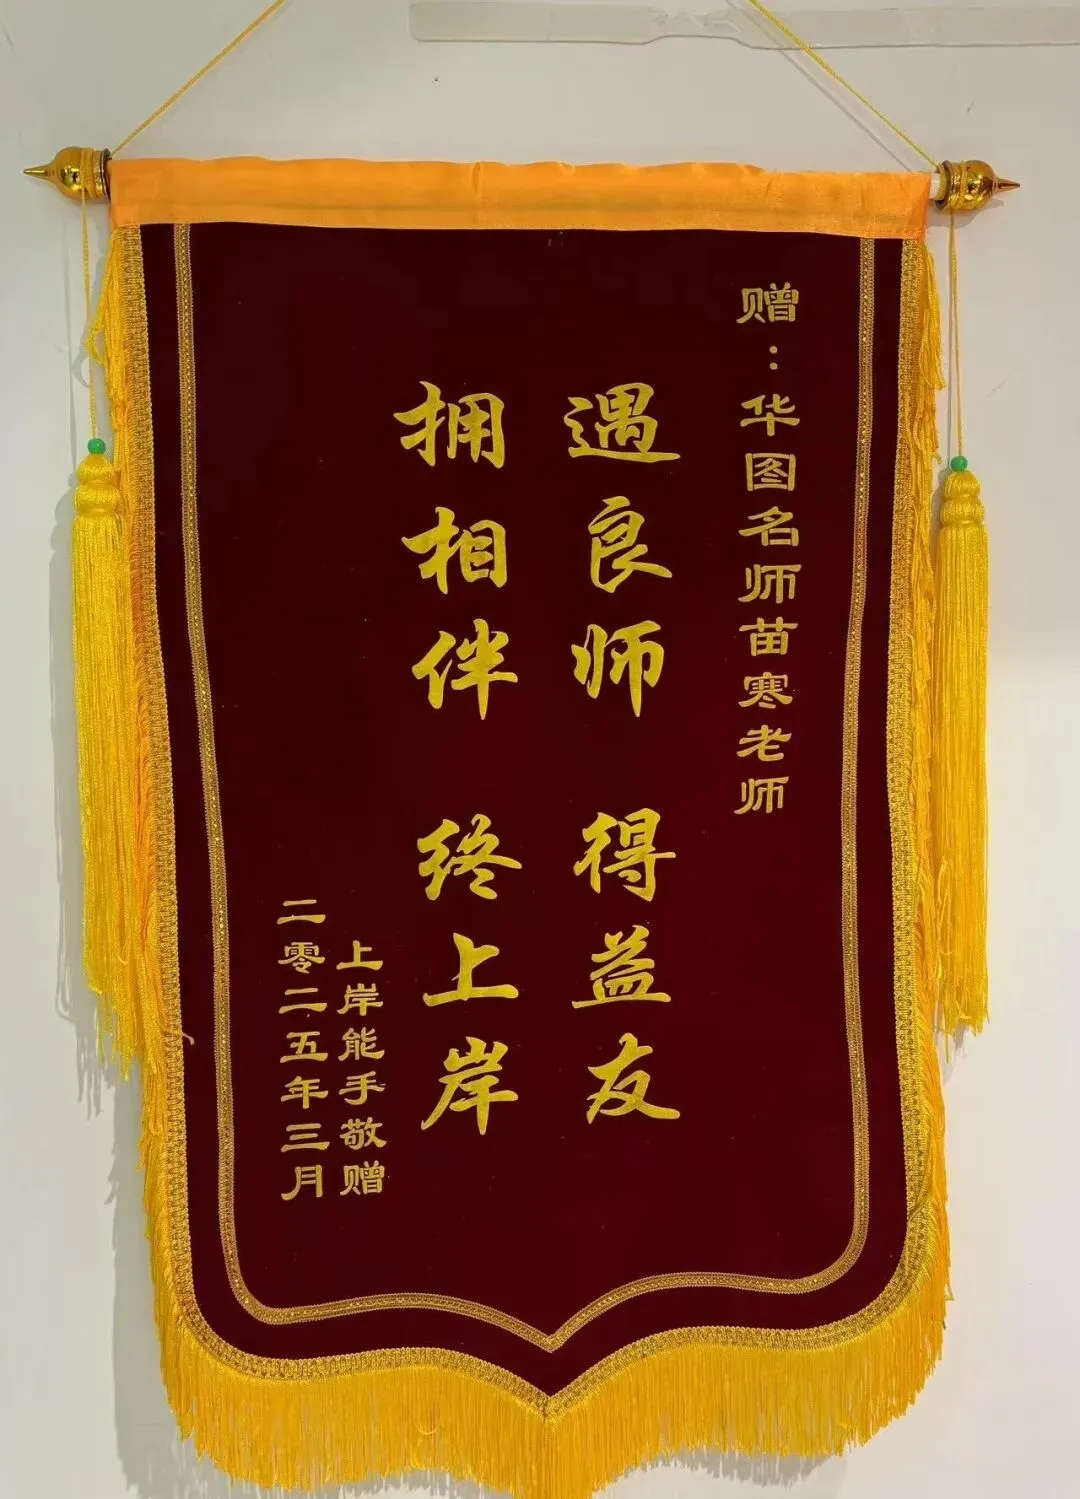 赠：华图名师苗寒老师
遇良师 得益友
拥相伴 终上岸
上岸能手敬赠
二零二五年三月